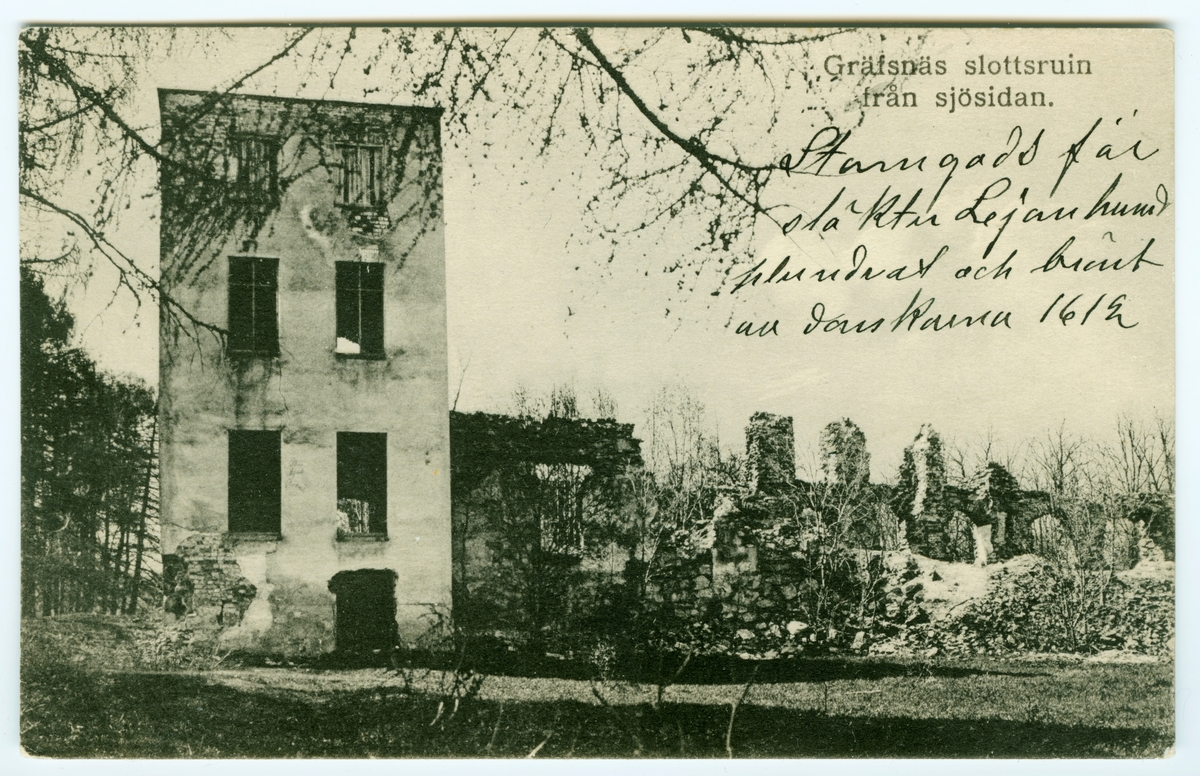 Gräfsnäs slottsruin
från sjösidan.
Stamgods för
släkten Lejonhuvud
plundrat och bränt
av danskarna 1612